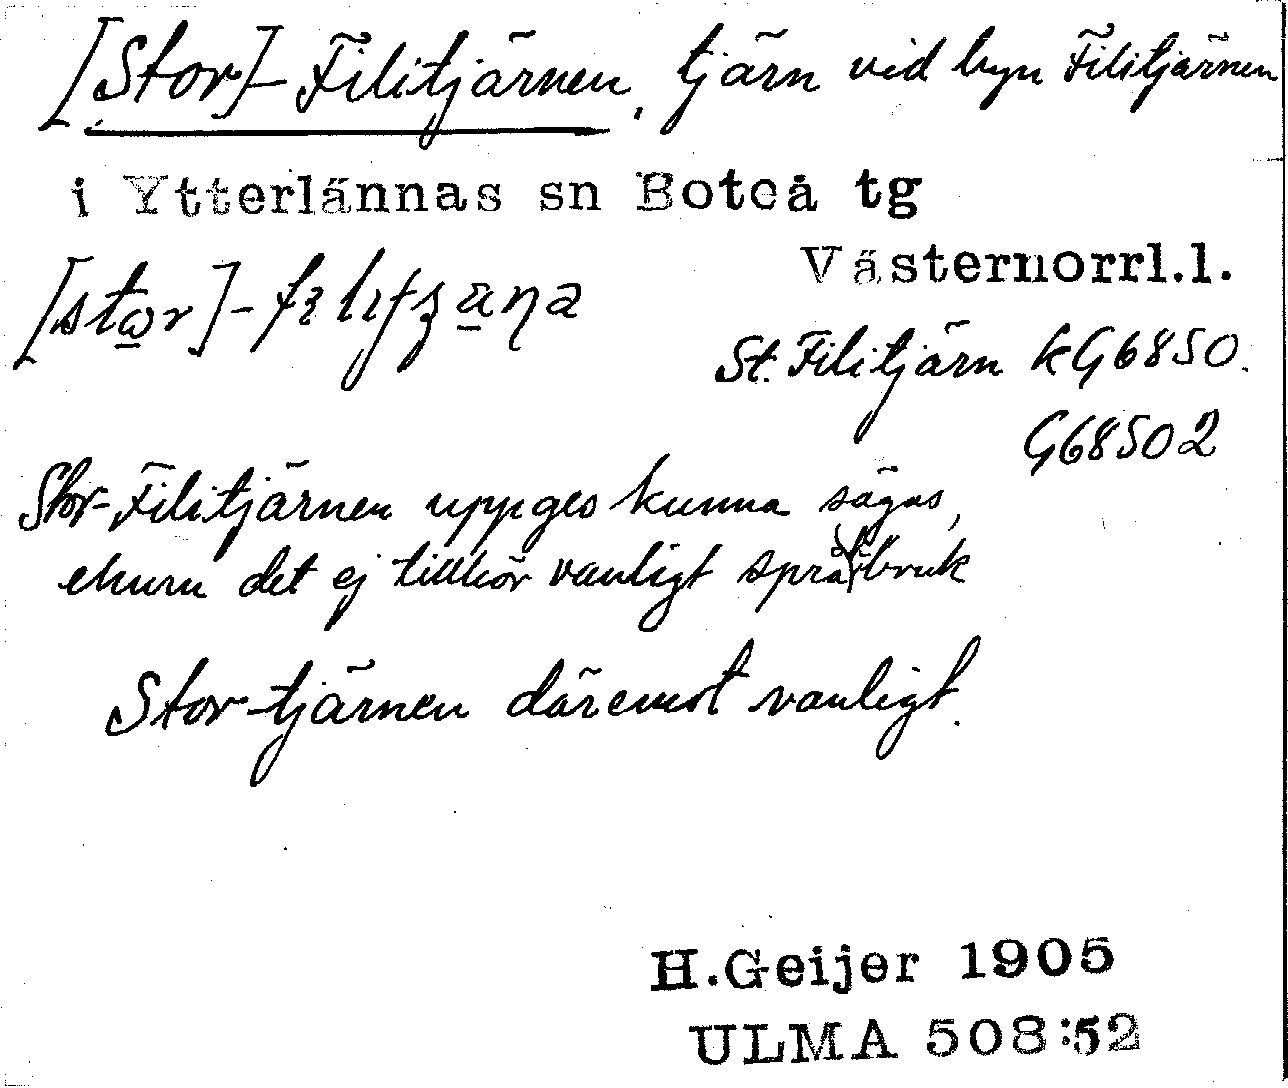 [Stor]-Filitjärnen, tjärn vid byn Filitjärnen
i Ytterlännas sn Boteå tg
Västernorrl.l.
St. Filitjärn kG6850.
G68502
Stor-Filitjärnen uppges kunna sägas,
ehuru det ej tillhör vanligt språkbruk
Stor-tjärnen däremot vanligt.
H.Geijer 1905
ULMA 508:52